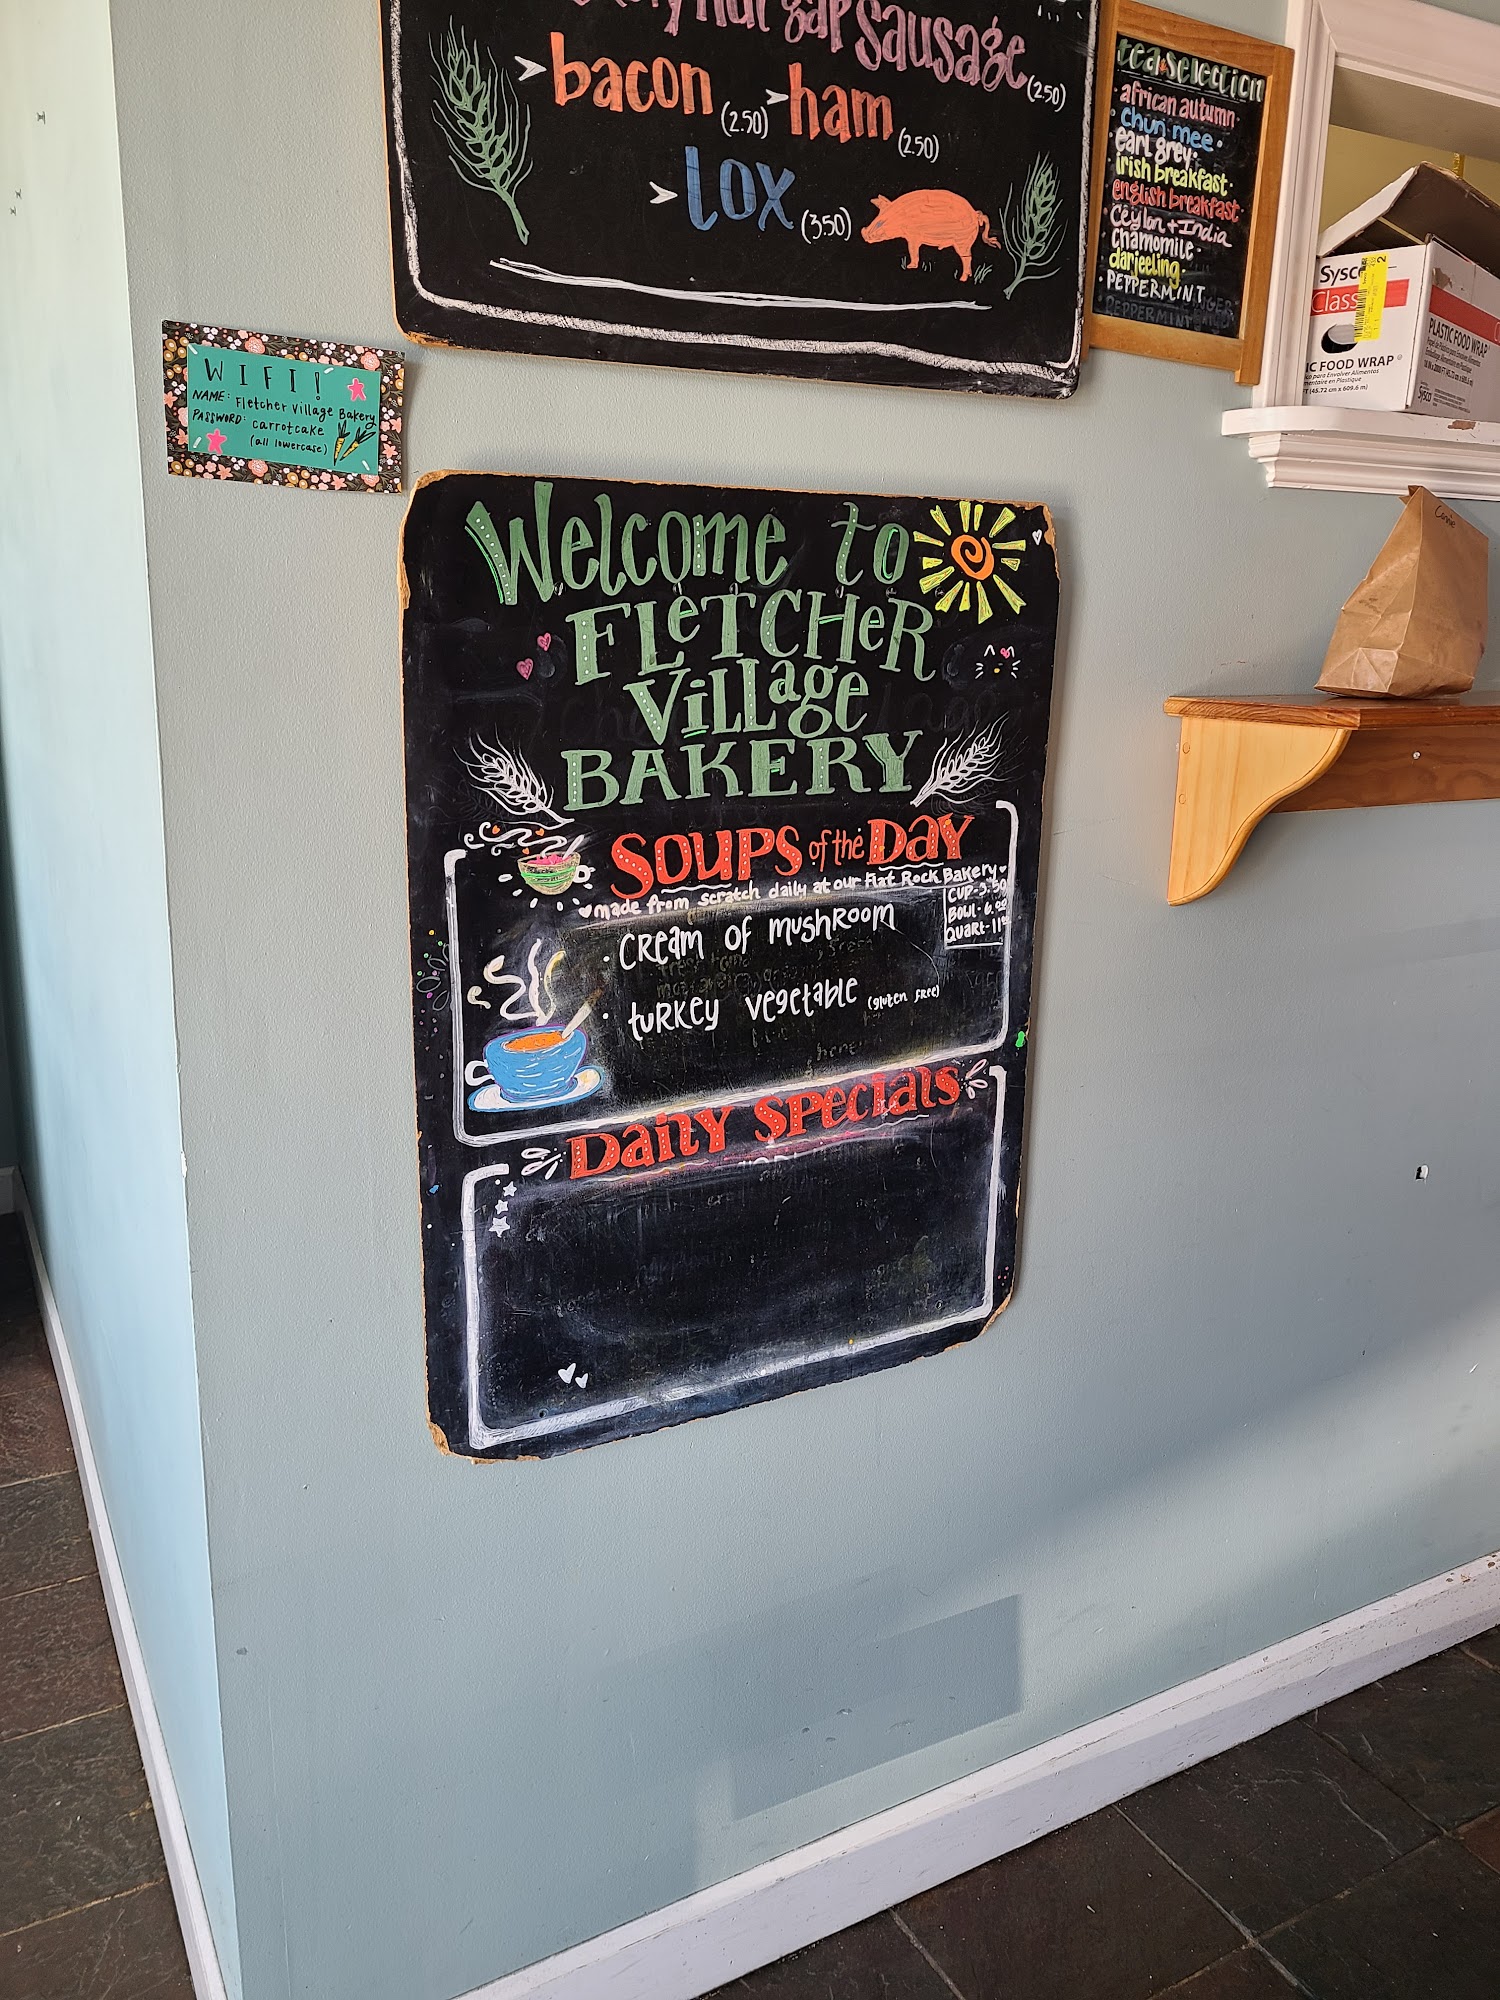 nut gap sausage (2.50)
> bacon (2.50) > ham (2.50)
> lox (3.50)
tea selection
african autumn
chun mee
earl grey
irish breakfast
english breakfast
Ceylon + India
chamomile
darjeeling
PEPPERMINT
PEPPERMINT
Sysco
Classic
PLASTIC FOOD WRAP
IC FOOD WRAP ®
FT (45.72 cm x 609.6 m)
Sysco
2
WIFI!
NAME: Fletcher Village Bakery
PASSWORD: carrotcake
(all lowercase)
Connie
Welcome to
FLeTCHeR
ViLLage
BAKERY
SOUPS of the DAY
made from scratch daily at our Flat Rock Bakery
CUP-3.50
BOWL-6.00
QUART-11
· CReam of mushRoom
· tuRkey vegetable (gluten free)
Daily Specials